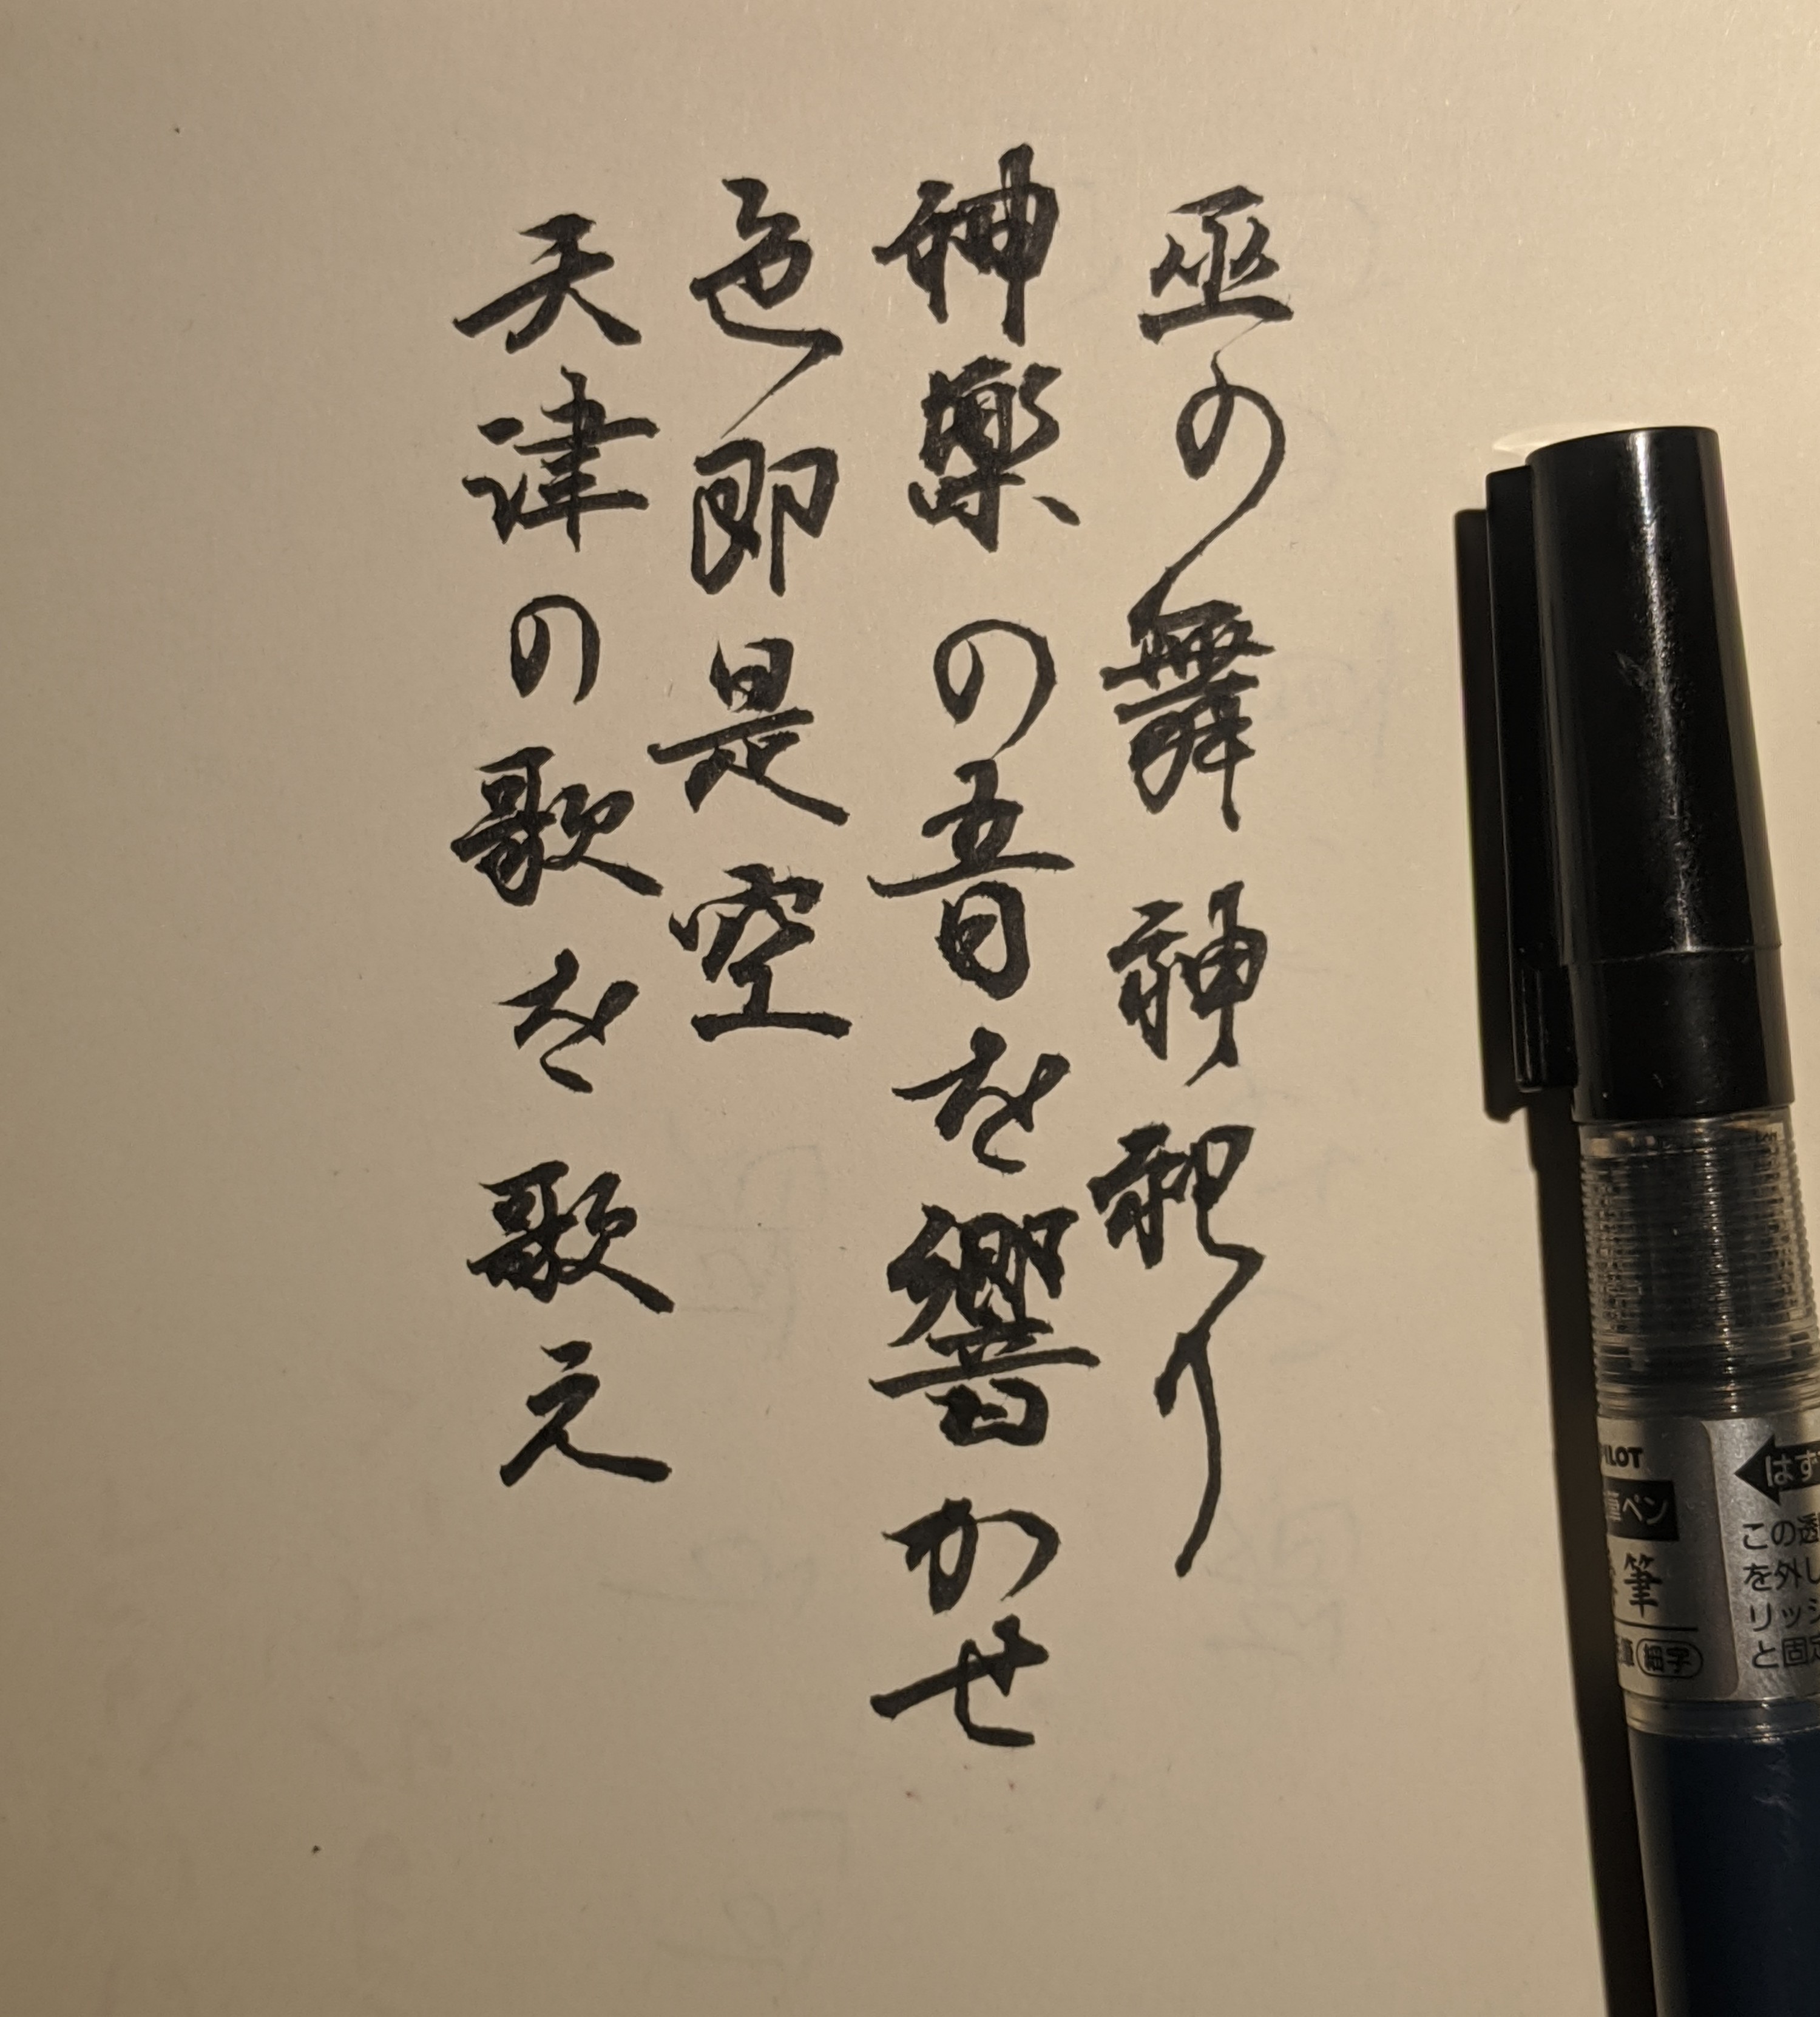 巫の舞神祀り
神楽の音を響かせ
色即是空
天津の歌を歌え
PILOT
筆ペン
筆
細字
はず
この透
を外し
リッジ
と固定